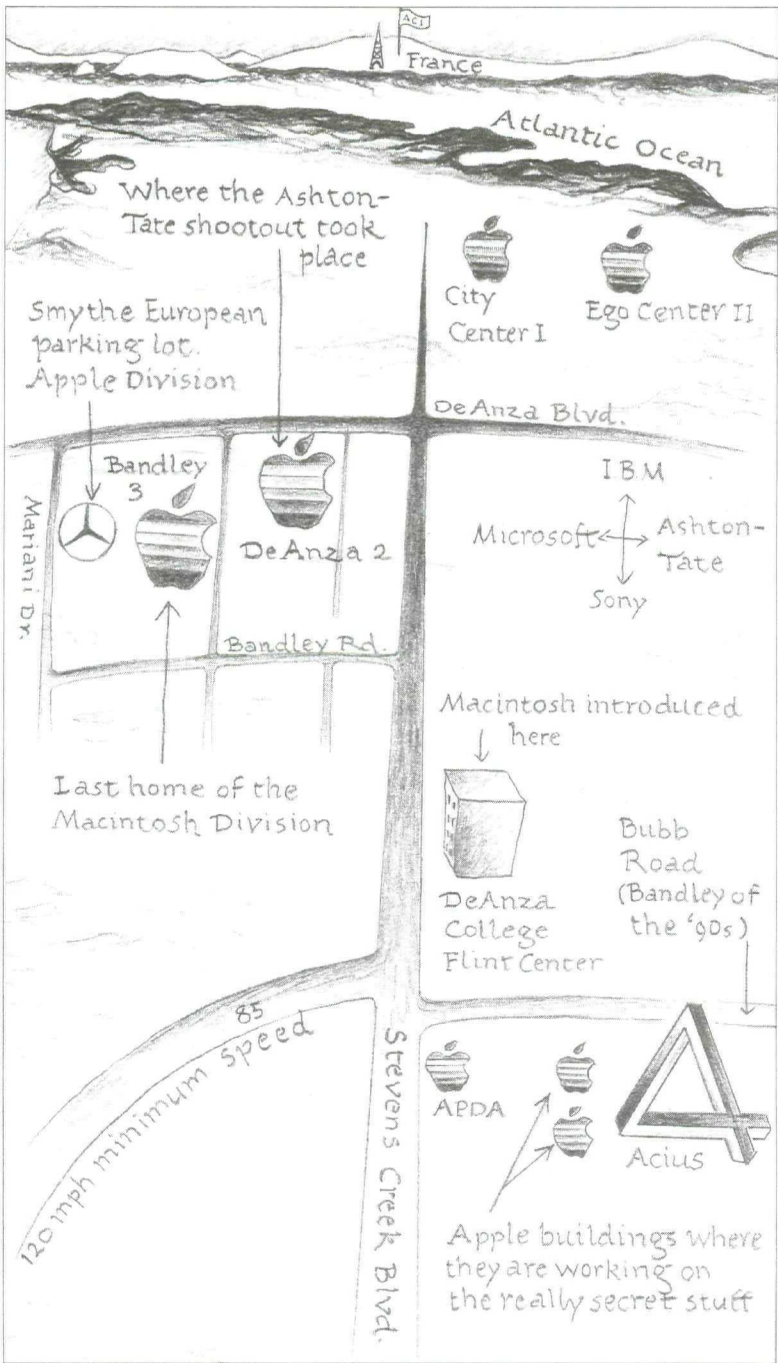 ACI
France
Atlantic Ocean
Where the Ashton-
Tate shootout took
place
City
Center I
Ego Center II
Smythe European
parking lot.
Apple Division
DeAnza Blvd.
Bandley
3
DeAnza 2
Mariani Dr.
I.B.M
Microsoft
Ashton-
Tate
Sony
Bandley Rd.
Macintosh introduced
here
Last home of the
Macintosh Division
DeAnza
College
Flint Center
Bubb
Road
(Bandley of
the '90s)
85
120 mph minimum speed
Stevens Creek Blvd.
APDA
Acius
Apple buildings where
they are working on
the really secret stuff